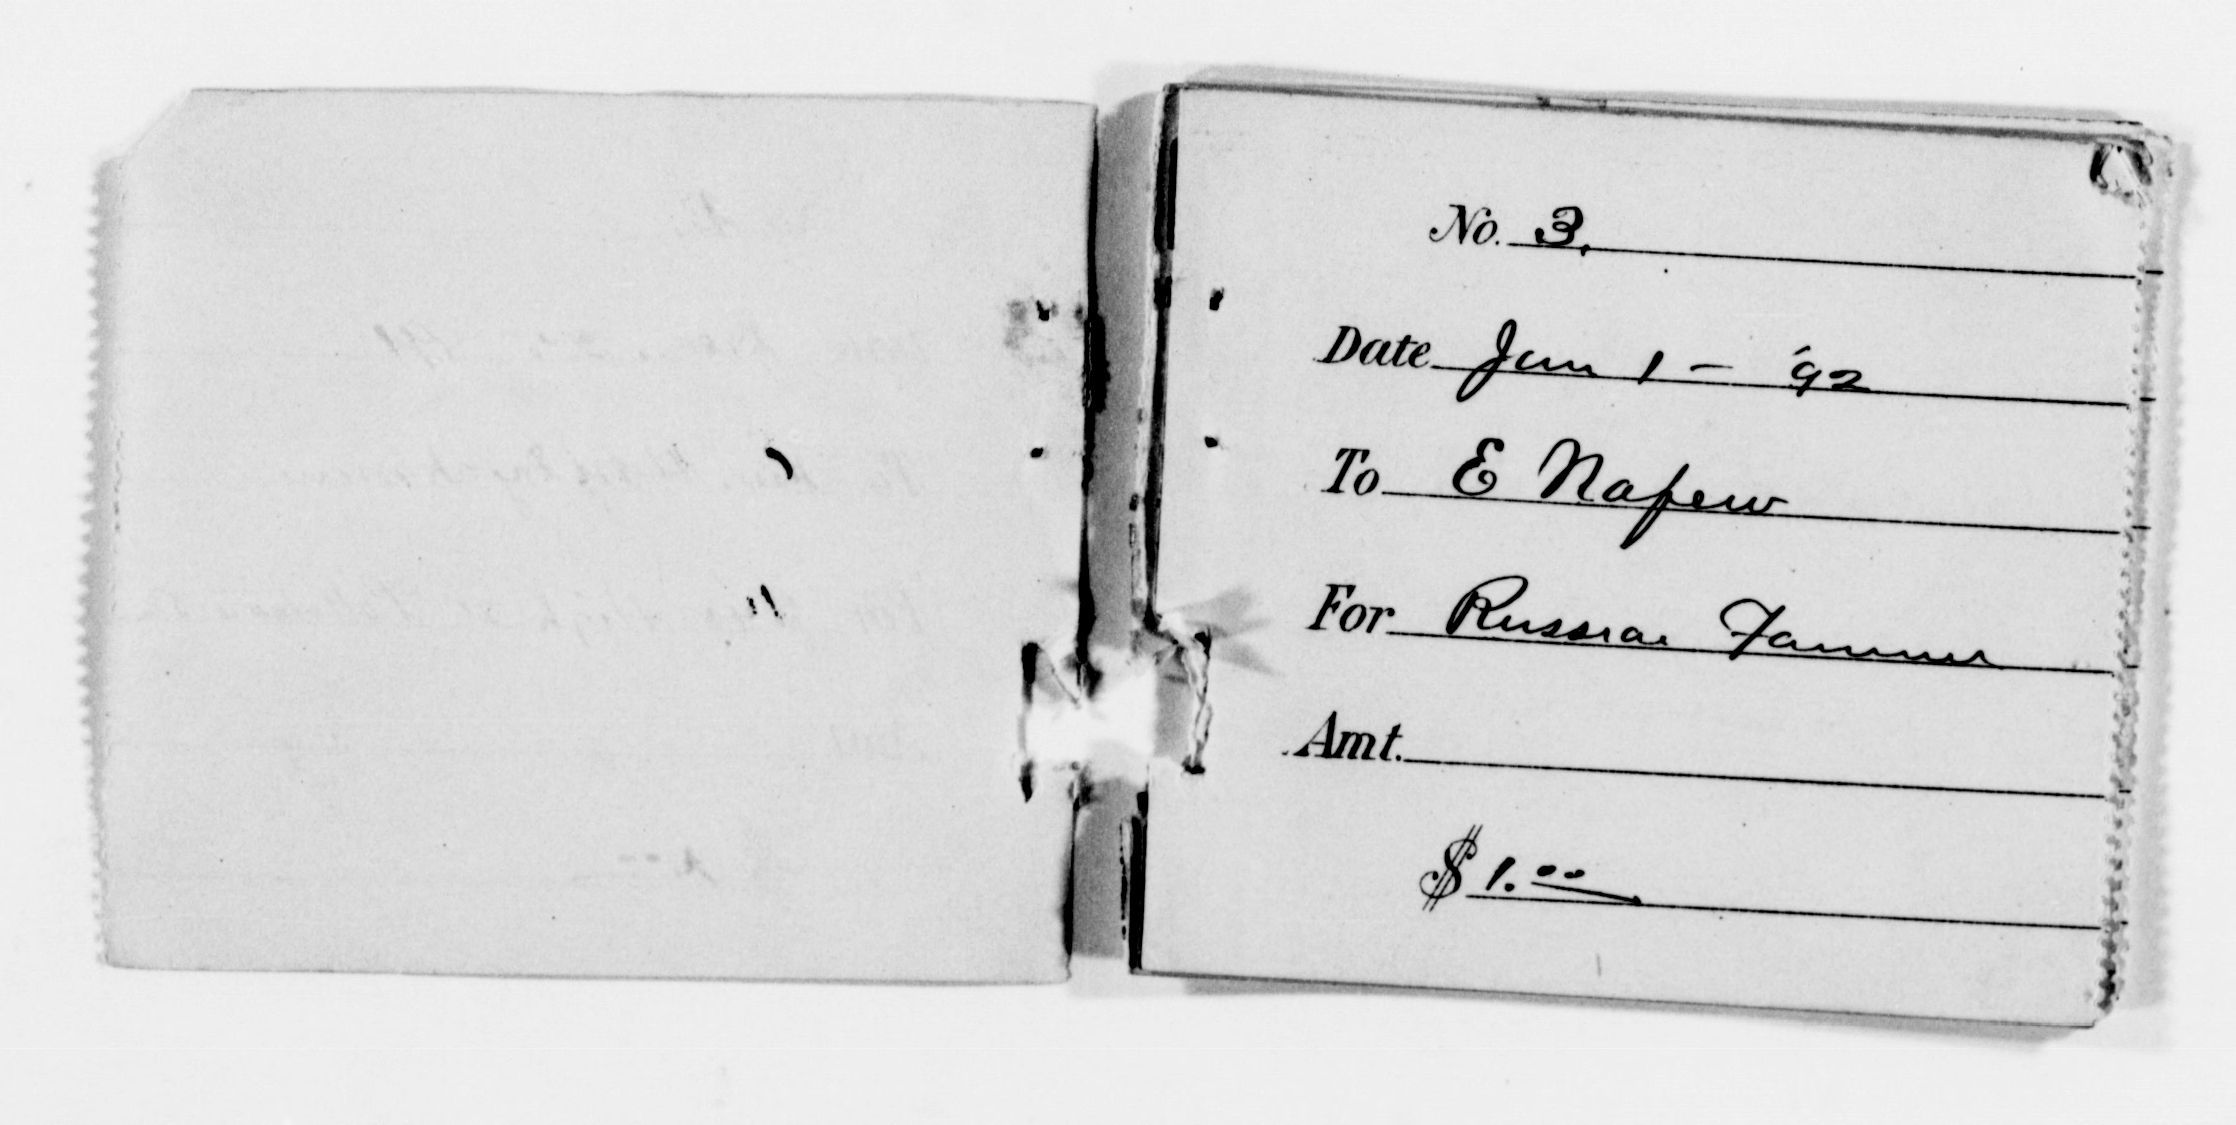 No. 3.
Date Jan 1 - '92
To E Napew
For Russian Famine
Amt.
$ 1.00